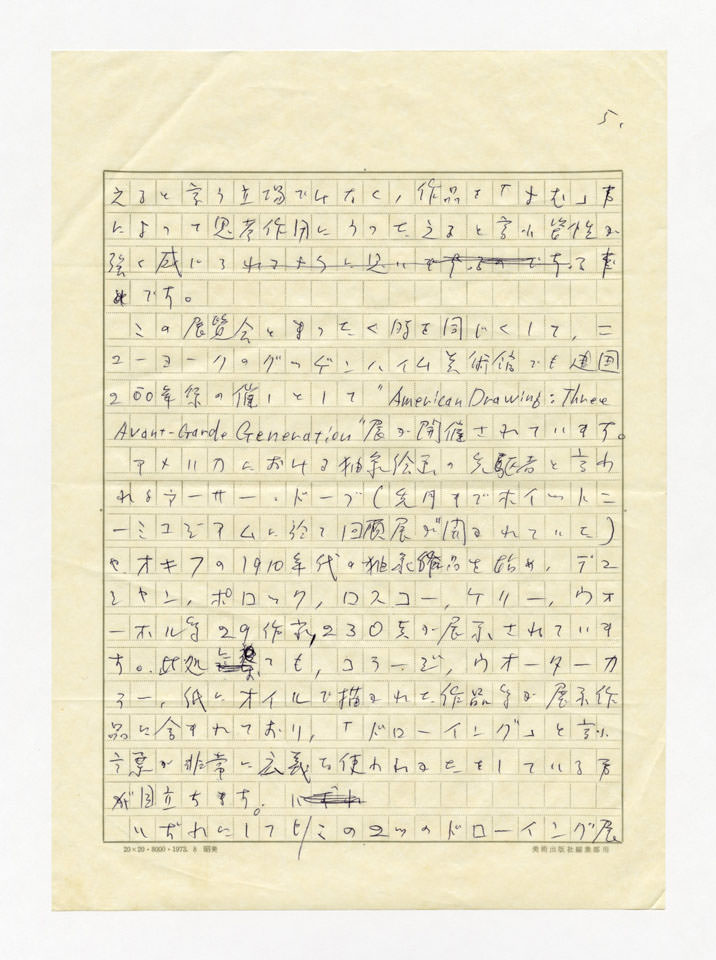 5.
えると言う立場ではなく，作品を「よむ」事
によって思考作用にうったえると言い 性が
強く感じられる
です。
この展覧会とまったく時を同じくして，ニ
ューヨークのグッゲンハイム美術館でも建国
200年祭の催しとして"American Drawing: Three
Avant-Garde Generation"展が開催されています。
アメリカにおける抽象絵画の先駆者と言わ
れるアーサー・ドーブ(先月までホイットニ
ーミュジアムに於て回顧展が開かれていた)
や，オキフの1910年代の抽象作品を始め，デュ
シャン，ポロック，ロスコー，ケリー，ウォ
ーホル等29作家，230点が展示されていま
す。此処 ても，コラージ，ウオーターカ
ラー，紙にオイルで描かれた作品等が展示作
品に含まれており，「ドローイング」と言い
言葉が非常に広義に使われ している事
が目立ちます。
いずれにしても，この2つのドローイング展
20×20・8000・1973. 8 昭美
美術出版社編集部用